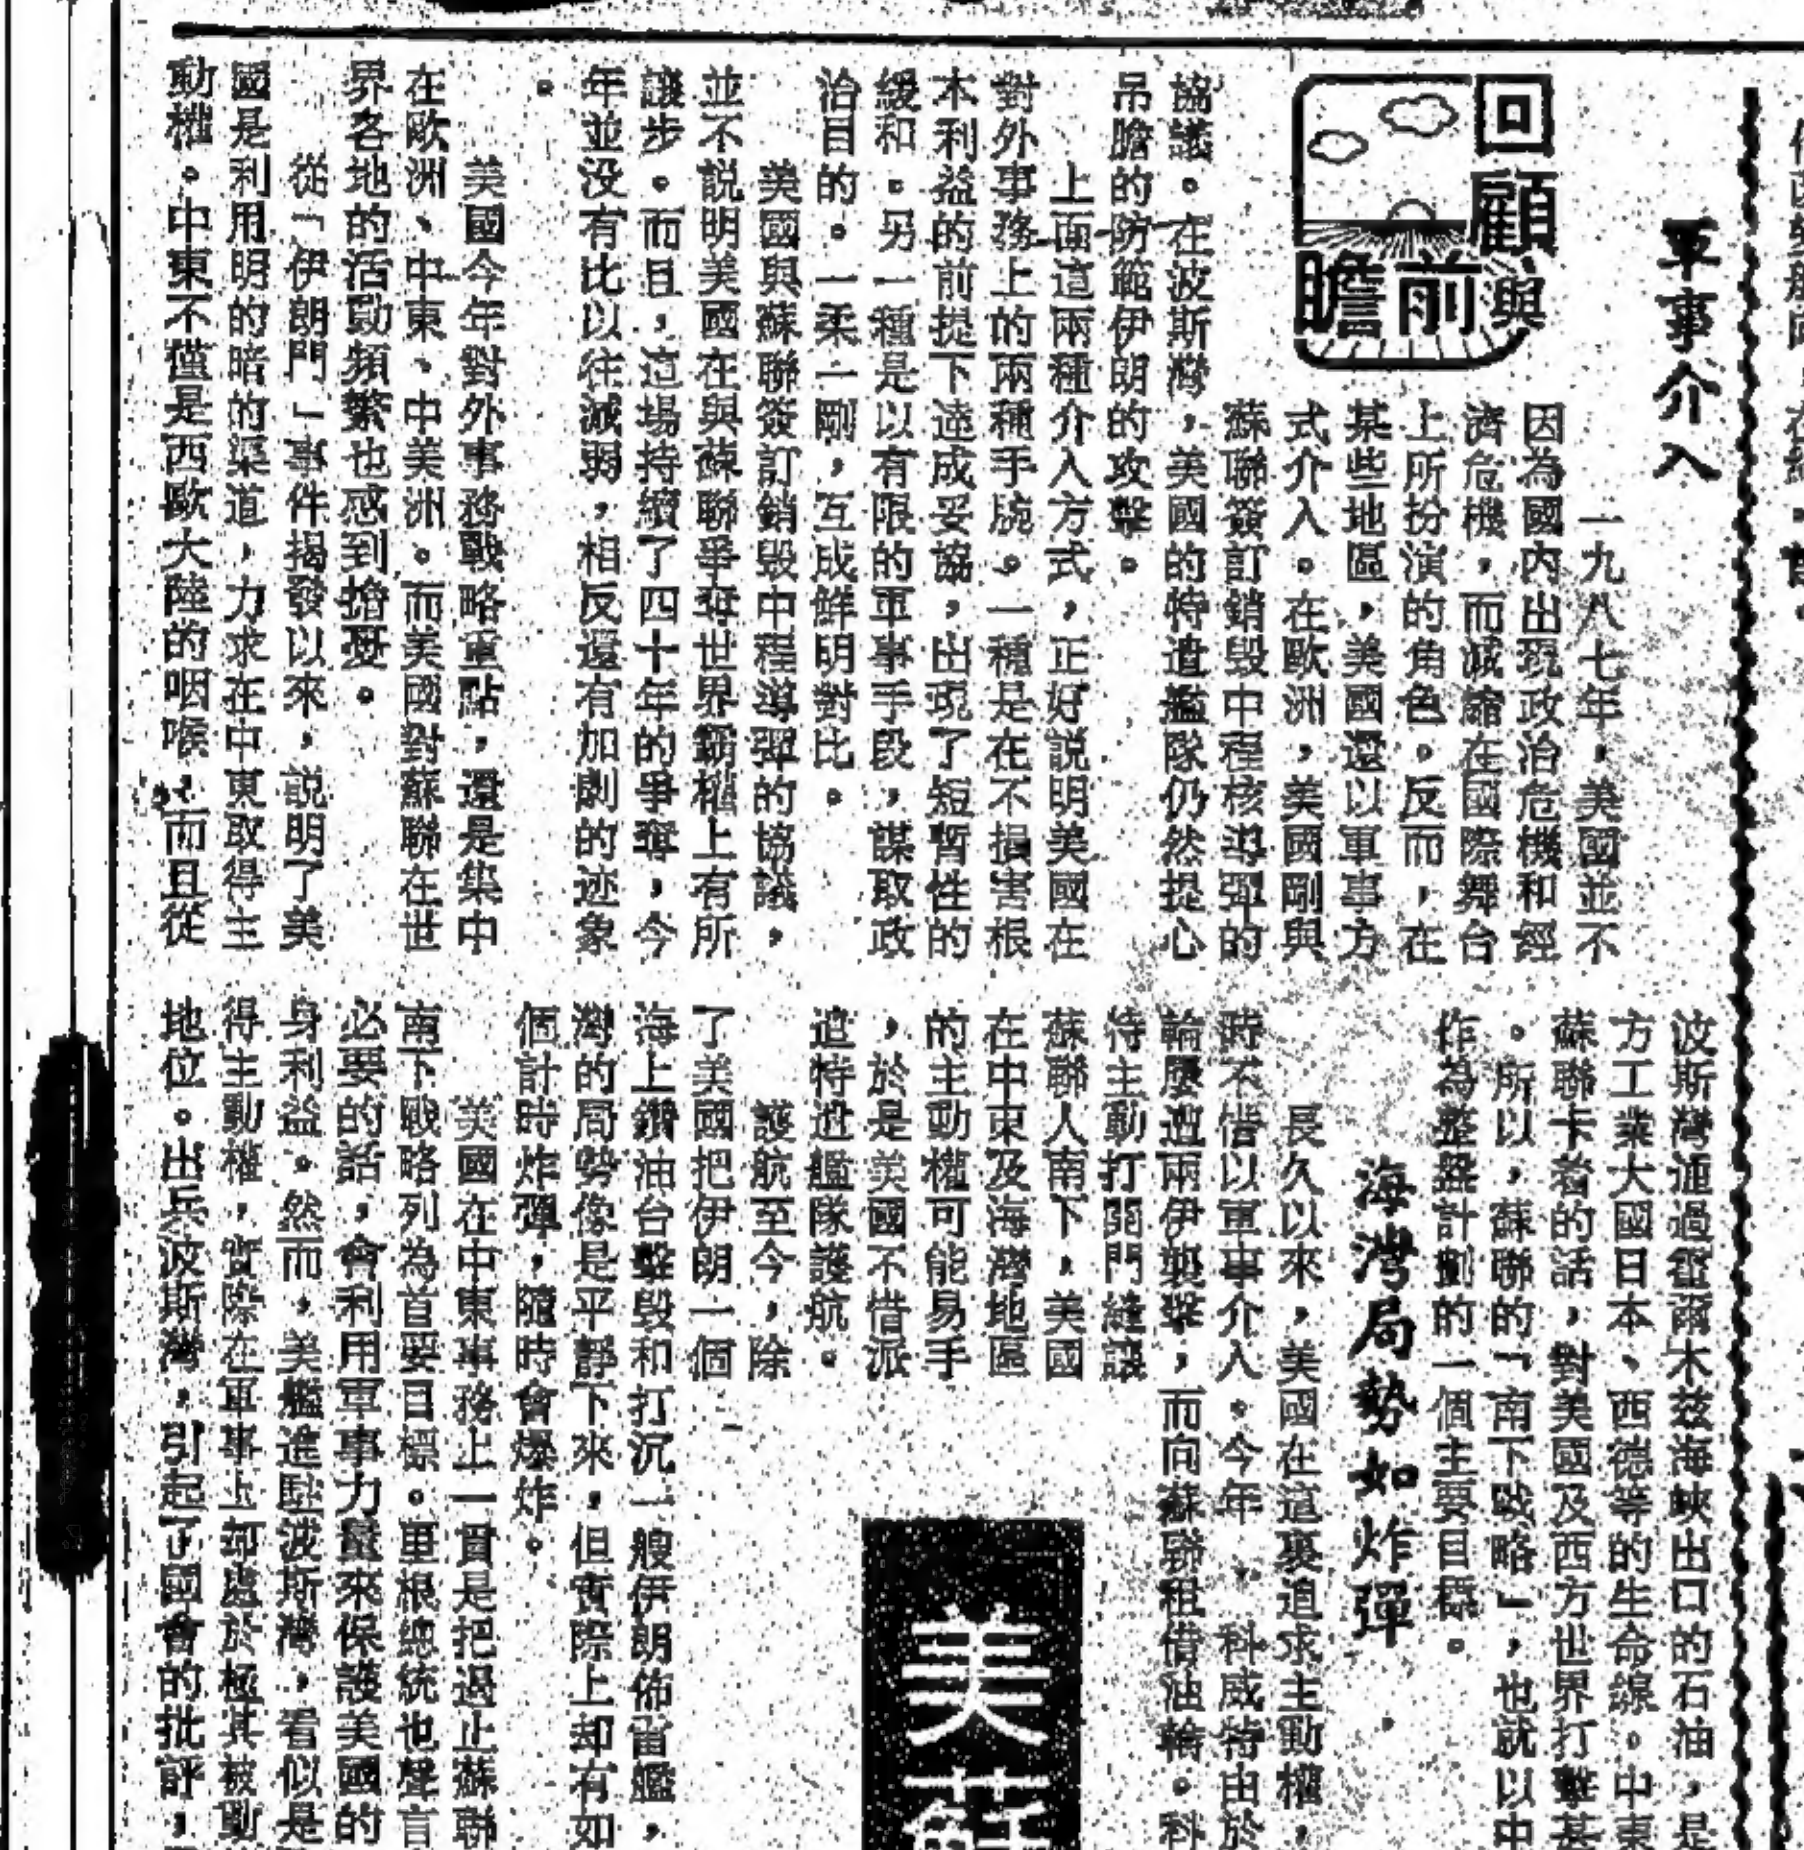 回顧與
前瞻
軍事介入
一九八七年，美國並不
因為國內出現政治危機和經
濟危機，而減縮在國際舞台
上所扮演的角色。反而，在
某些地區，美國還以軍事方
式介入。在歐洲，美國剛與
蘇聯簽訂銷毀中程核導彈的
協議。在波斯灣，美國的特遣艦隊仍然提心
吊膽的防範伊朗的攻擊。
上面這兩種介入方式，正好說明美國在
對外事務上的兩種手腕。一種是在不損害根
本利益的前提下達成妥協，出現了短暫性的
緩和。另一種是以有限的軍事手段，謀取政
治目的。一柔一剛，互成鮮明對比。
美國與蘇聯簽訂銷毀中程導彈的協議，
並不說明美國在與蘇聯爭奪世界霸權上有所
讓步。而且，這場持續了四十年的爭奪，今
年並没有比以往減弱，相反還有加劇的迹象
。
美國今年對外事務戰略重點，還是集中
在歐洲、中東、中美洲。而美國對蘇聯在世
界各地的活動頻繁也感到擔憂。
從「伊朗門」事件揭發以來，說明了美
國是利用明的暗的渠道，力求在中東取得主
動權。中東不僅是西歐大陸的咽喉，而且從
波斯灣通過霍爾木茲海峽出口的石油，是
方工業大國日本、西德等的生命線。中東
蘇聯卡着的話，對美國及西方世界打擊甚
。所以，蘇聯的「南下戰略」，也就以中
作為整盤計劃的一個主要目標。
海灣局勢如炸彈
長久以來，美國在這裏追求主動權，
時不惜以軍事介入。今年，科威特由於
輪屢遭兩伊襲擊，而向蘇聯租借油輪。科
特主動打開門縫讓
蘇聯人南下，美國
在中東及海灣地區
的主動權可能易手
，於是美國不惜派
遣特遣艦隊護航。
護航至今，除
了美國把伊朗一個
海上鑽油台擊毀和打沉一艘伊朗佈雷艦，
灣的局勢像是平靜下來，但實際上却有如
個計時炸彈，隨時會爆炸。
美國在中東事務上一貫是把遏止蘇聯
南下戰略列為首要目標。里根總統也聲言
必要的話，會利用軍事力量來保護美國的
身利益。然而，美艦進駐波斯灣，看似是
得主動權，實際在軍事上却處於極其被動
地位。出兵波斯灣，引起了國會的批評，
美蘇